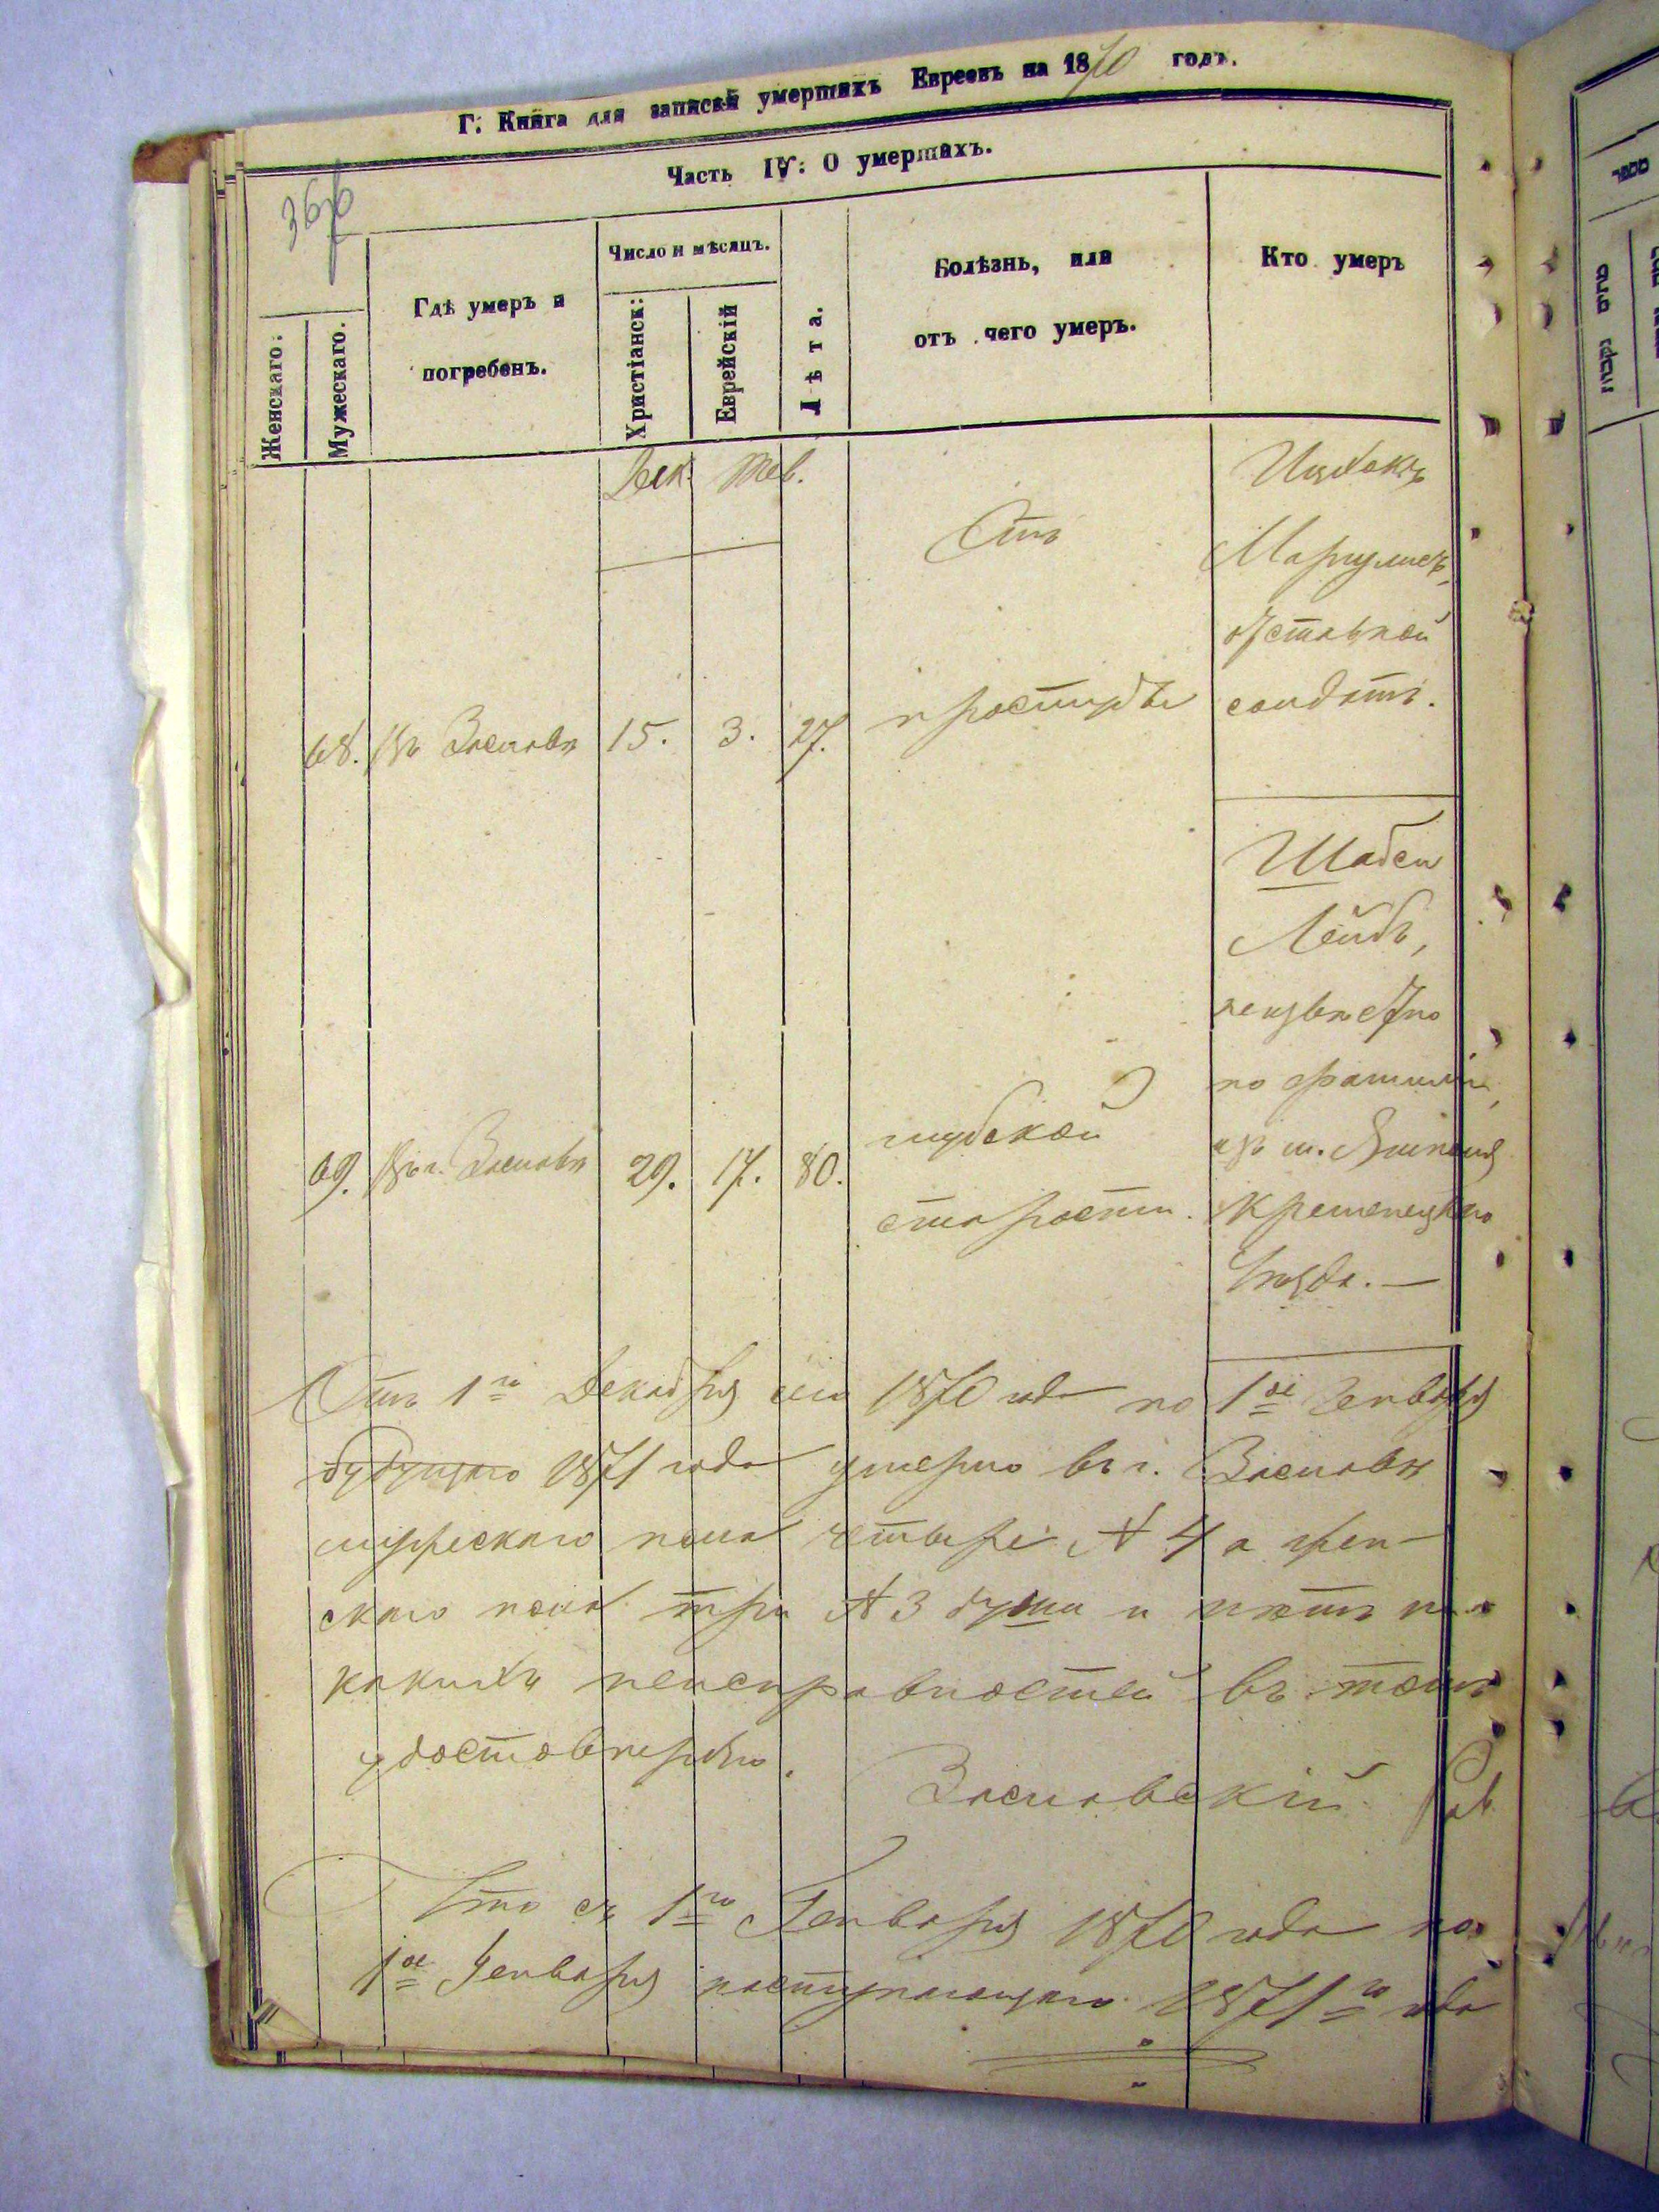 Г. Книга для записки умершихъ Евреевъ на 1870 годъ.
Часть IV: О умершихъ.
Женскаго.
Мужескаго.
Гдѣ умеръ и
погребенъ.
Число и мѣсяцъ.
Христіанск:
Еврейскій
Лѣта.
Болѣзнь, или
отъ чего умеръ.
Кто умеръ
Дек. Тев.
68. Въ Заславѣ 15. 3. 27.
Отъ
простуды
Ицхокъ
Маргулисъ,
отставной
солдатъ.
69. Въ г. Заславѣ 29. 17. 80.
глубокой
старости.
Шабси
Лейбъ,
неизвѣстно
по фамиліи,
изъ м.
Кременецкаго
уѣзда. —
Отъ 1го Декабря сего 1870 года по 1ое Генваря
будущаго 1871 года умерло въ г. Заславѣ
мужескаго пола четыре № 4 а жен-
скаго пола три № 3 души и нѣтъ ни-
какихъ неисправностей въ томъ
удостовѣряю.
Заславскій Рав
Что съ 1го Генваря 1870 года по
1ое Генваря наступающаго 1871го года